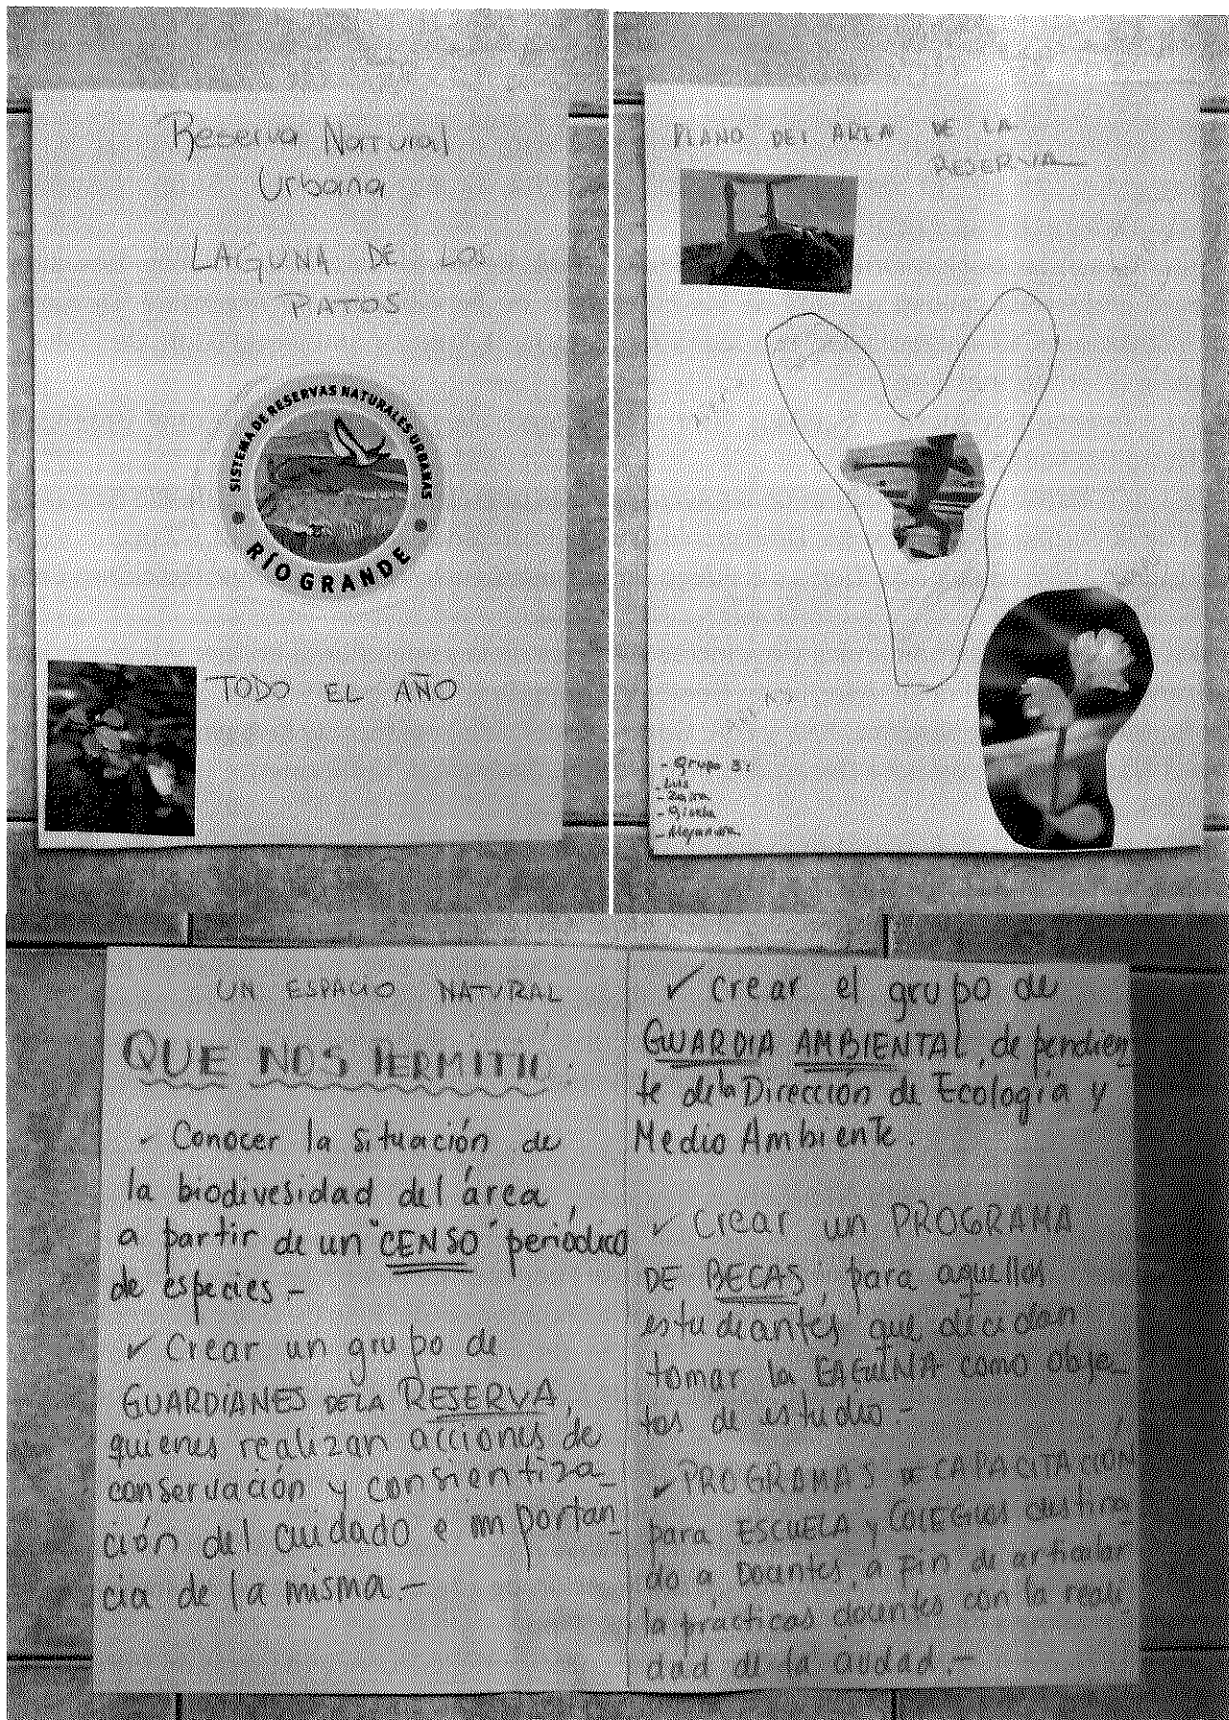 Reserva Natural
Urbana
LAGUNA DE LOS
PATOS
SISTEMA DE RESERVAS NATURALES URBANAS
RÍO GRANDE
TODO EL AÑO
PLANO DEL AREA DE LA
RESERVA
- Grupo 3:
- Luis
- Gisela
- Alejandra
UN ESPACIO NATURAL
QUE NOS PERMITE:
✓ Conocer la situación de
la biodivesidad del área,
a partir de un "CENSO" periódico
de especies -
✓ Crear un grupo de
GUARDIANES DE LA RESERVA,
quienes realizan acciones de
conservación y consientiza_
ción del cuidado e importan_
cia de la misma. -
✓ crear el grupo de
GUARDIA AMBIENTAL, dependien
te de la Dirección de Ecología y
Medio Ambiente.
✓ Crear un PROGRAMA
DE BECAS, para aquellos
estudiantes que decidan
tomar la LAGUNA como obje_
tos de estudio -
✓ PROGRAMAS DE CAPACITACIÓN
para ESCUELA y COLEGIOS destina_
do a Docentes, a fin de articular
la prácticas docentes con la reali_
dad de la ciudad. -